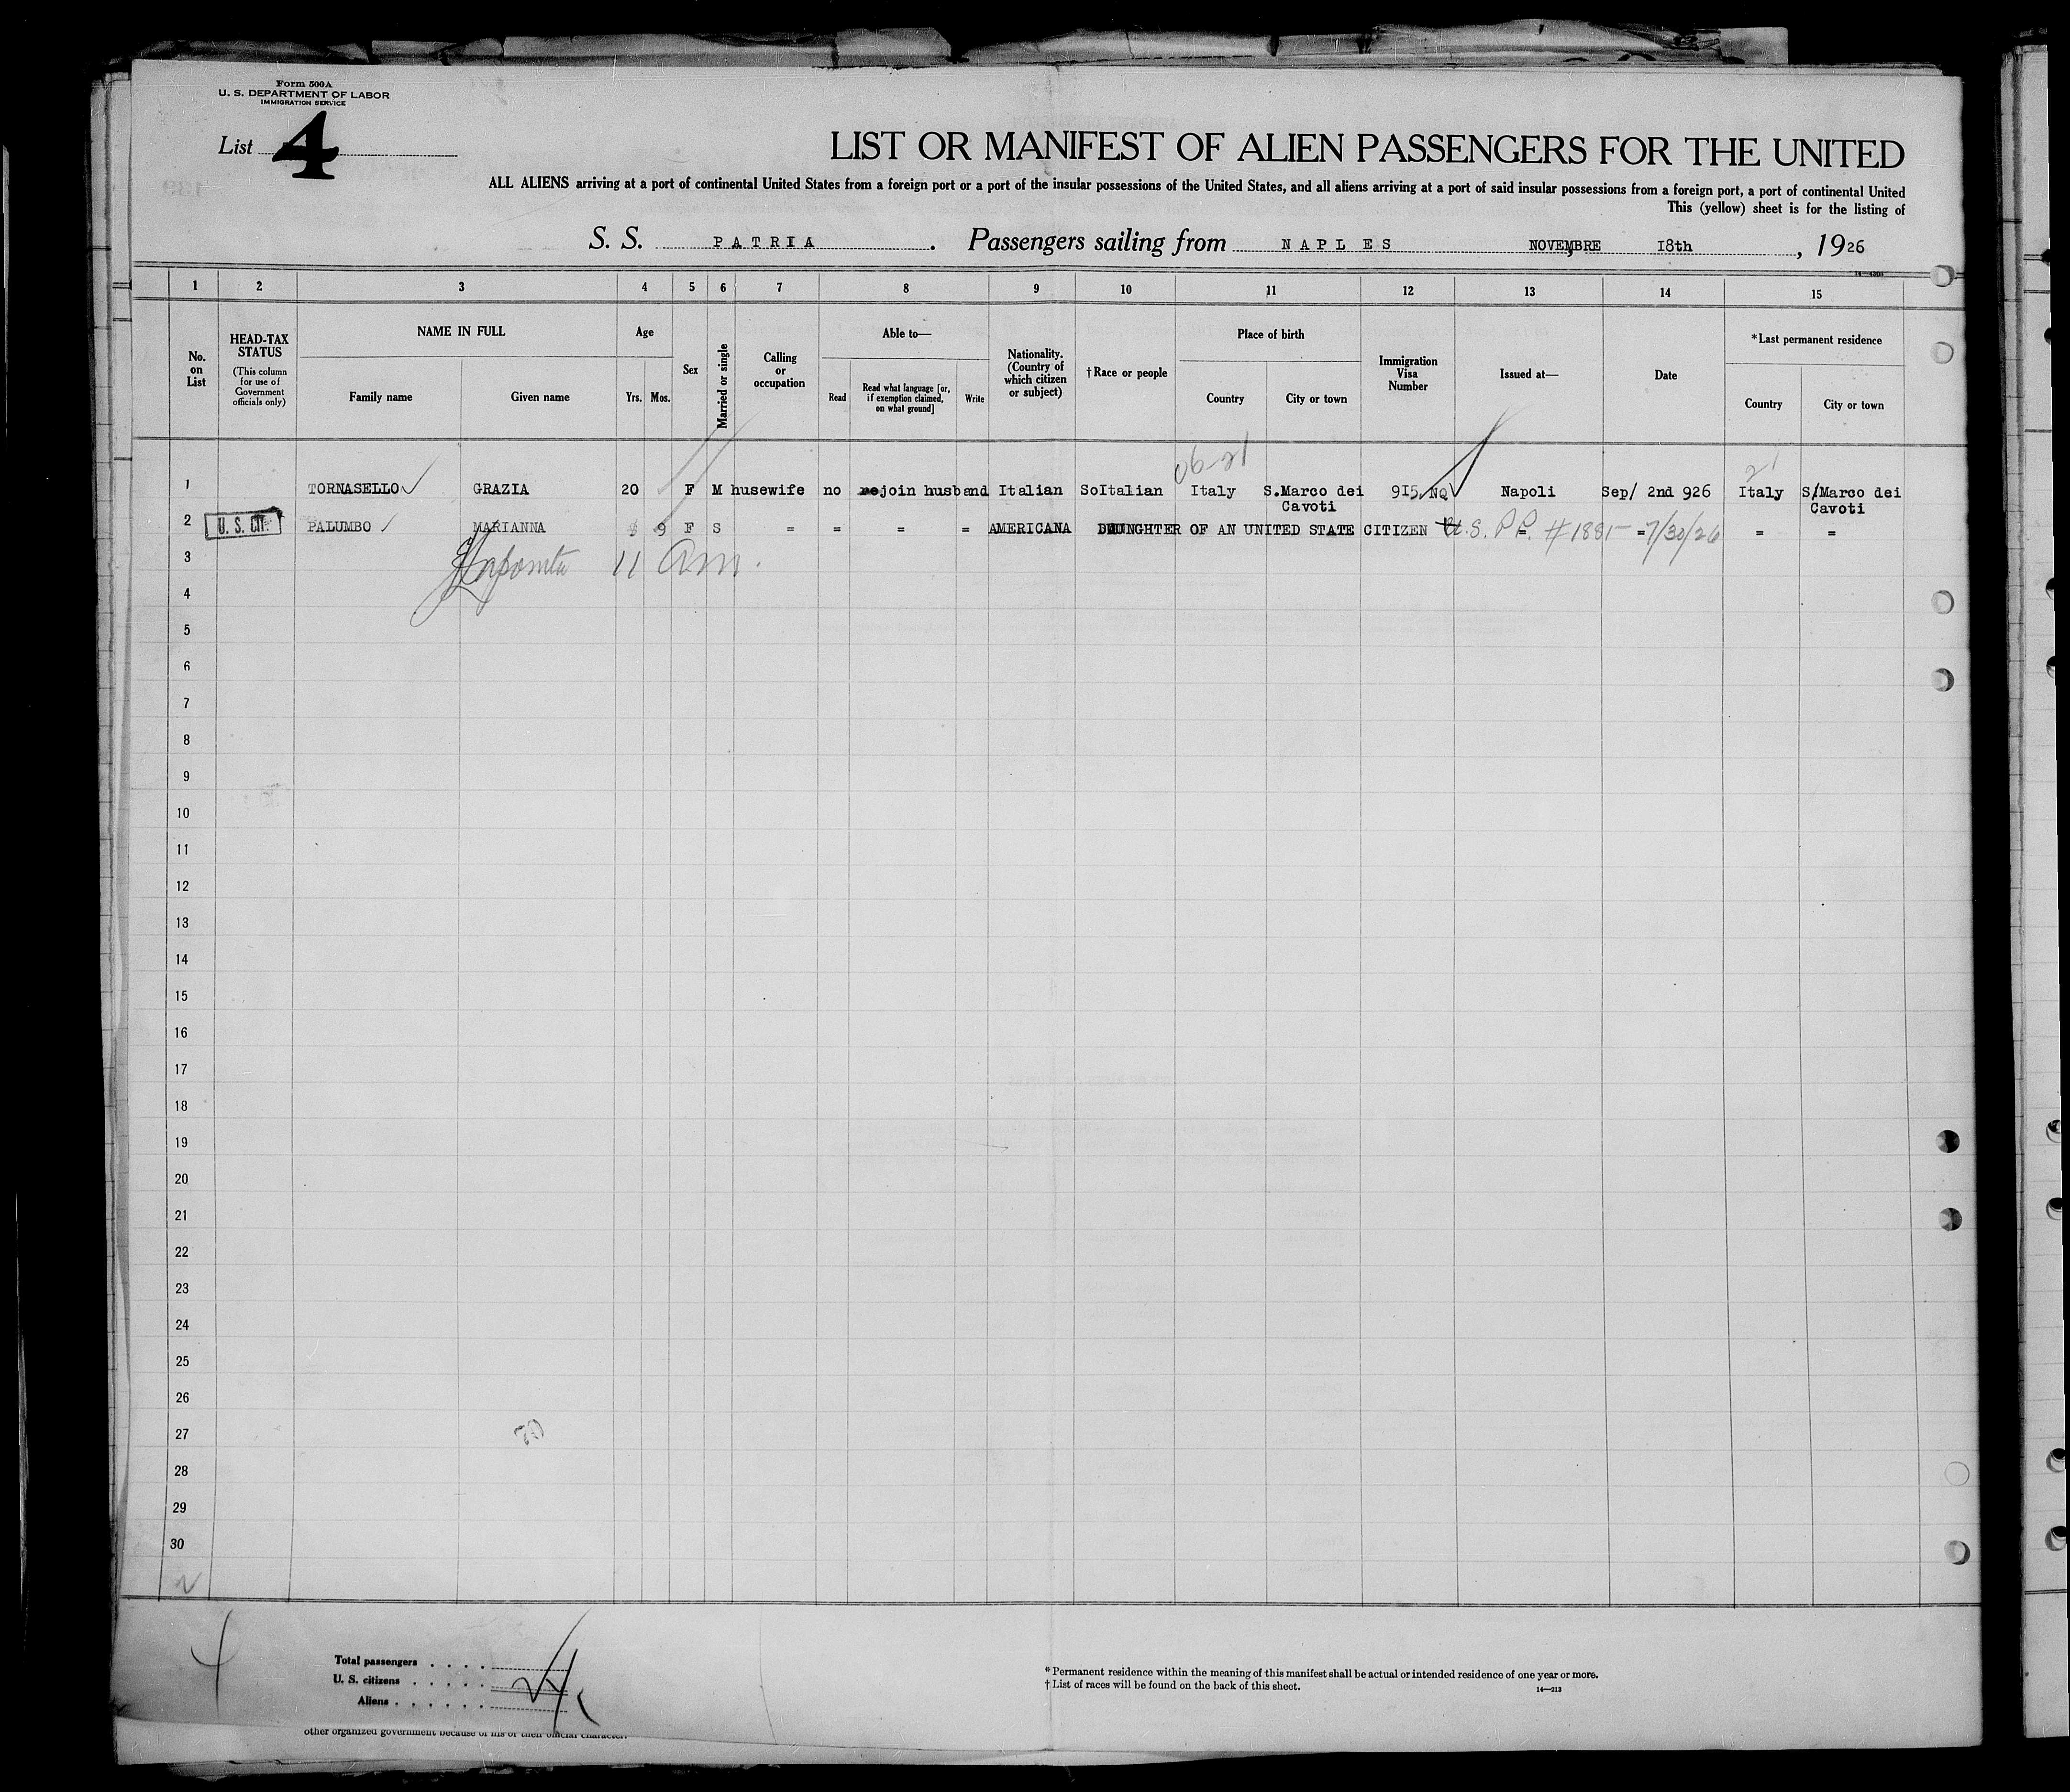 Form 500A
U. S. DEPARTMENT OF LABOR
IMMIGRATION SERVICE
List 4
LIST OR MANIFEST OF ALIEN PASSENGERS FOR THE UNITED
ALL ALIENS arriving at a port of continental United States from a foreign port or a port of the insular possessions of the United States, and all aliens arriving at a port of said insular possessions from a foreign port, a port of continental United
This (yellow) sheet is for the listing of
S. S. PATRIA . Passengers sailing from NAPLES NOVEMBRE 18th , 1926
1 2 3 4 5 6 7 8 9 10 11 12 13 14 15
No. on List
HEAD-TAX STATUS
(This column for use of Government officials only)
NAME IN FULL
Family name
Given name
Age
Yrs.
Mos.
Sex
Married or single
Calling or occupation
Able to—
Read
Read what language [or, if exemption claimed, on what ground]
Write
Nationality. (Country of which citizen or subject)
†Race or people
Place of birth
Country
City or town
Immigration Visa Number
Issued at—
Date
*Last permanent residence
Country
City or town
1 TORNASELLO GRAZIA 20 F M husewife no rejoin husband Italian SoItalian Italy S.Marco dei Cavoti 9I5 NQ Napoli Sep/ 2nd 926 Italy S/Marco dei Cavoti
2 U. S. CIT. PALUMBO MARIANNA 9 F S = = = = AMERICANA DAUNGHTER OF AN UNITED STATE CITIZEN U.S. P.P. #1881 = 7/30/26 = =
3 11 am.
4
5
6
7
8
9
10
11
12
13
14
15
16
17
18
19
20
21
22
23
24
25
26
27
28
29
30
4
Total passengers . . . .
U. S. citizens . . . . .
Aliens . . . . . .
* Permanent residence within the meaning of this manifest shall be actual or intended residence of one year or more.
† List of races will be found on the back of this sheet.
14—213
other organized government because of his or their official character.